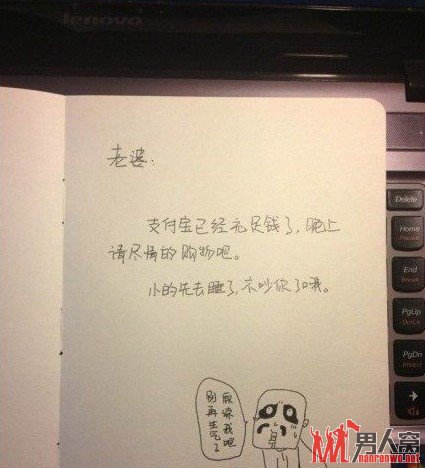 lenovo
老婆：
支付宝已经充足钱了，晚上
请尽情的购物吧。
小的先去睡了，不吵你了哦。
原谅我吧
别再生气了
Delete
Home
End
Break
PgUp
PgDn
Insert
男人窝
nanrenwo.net